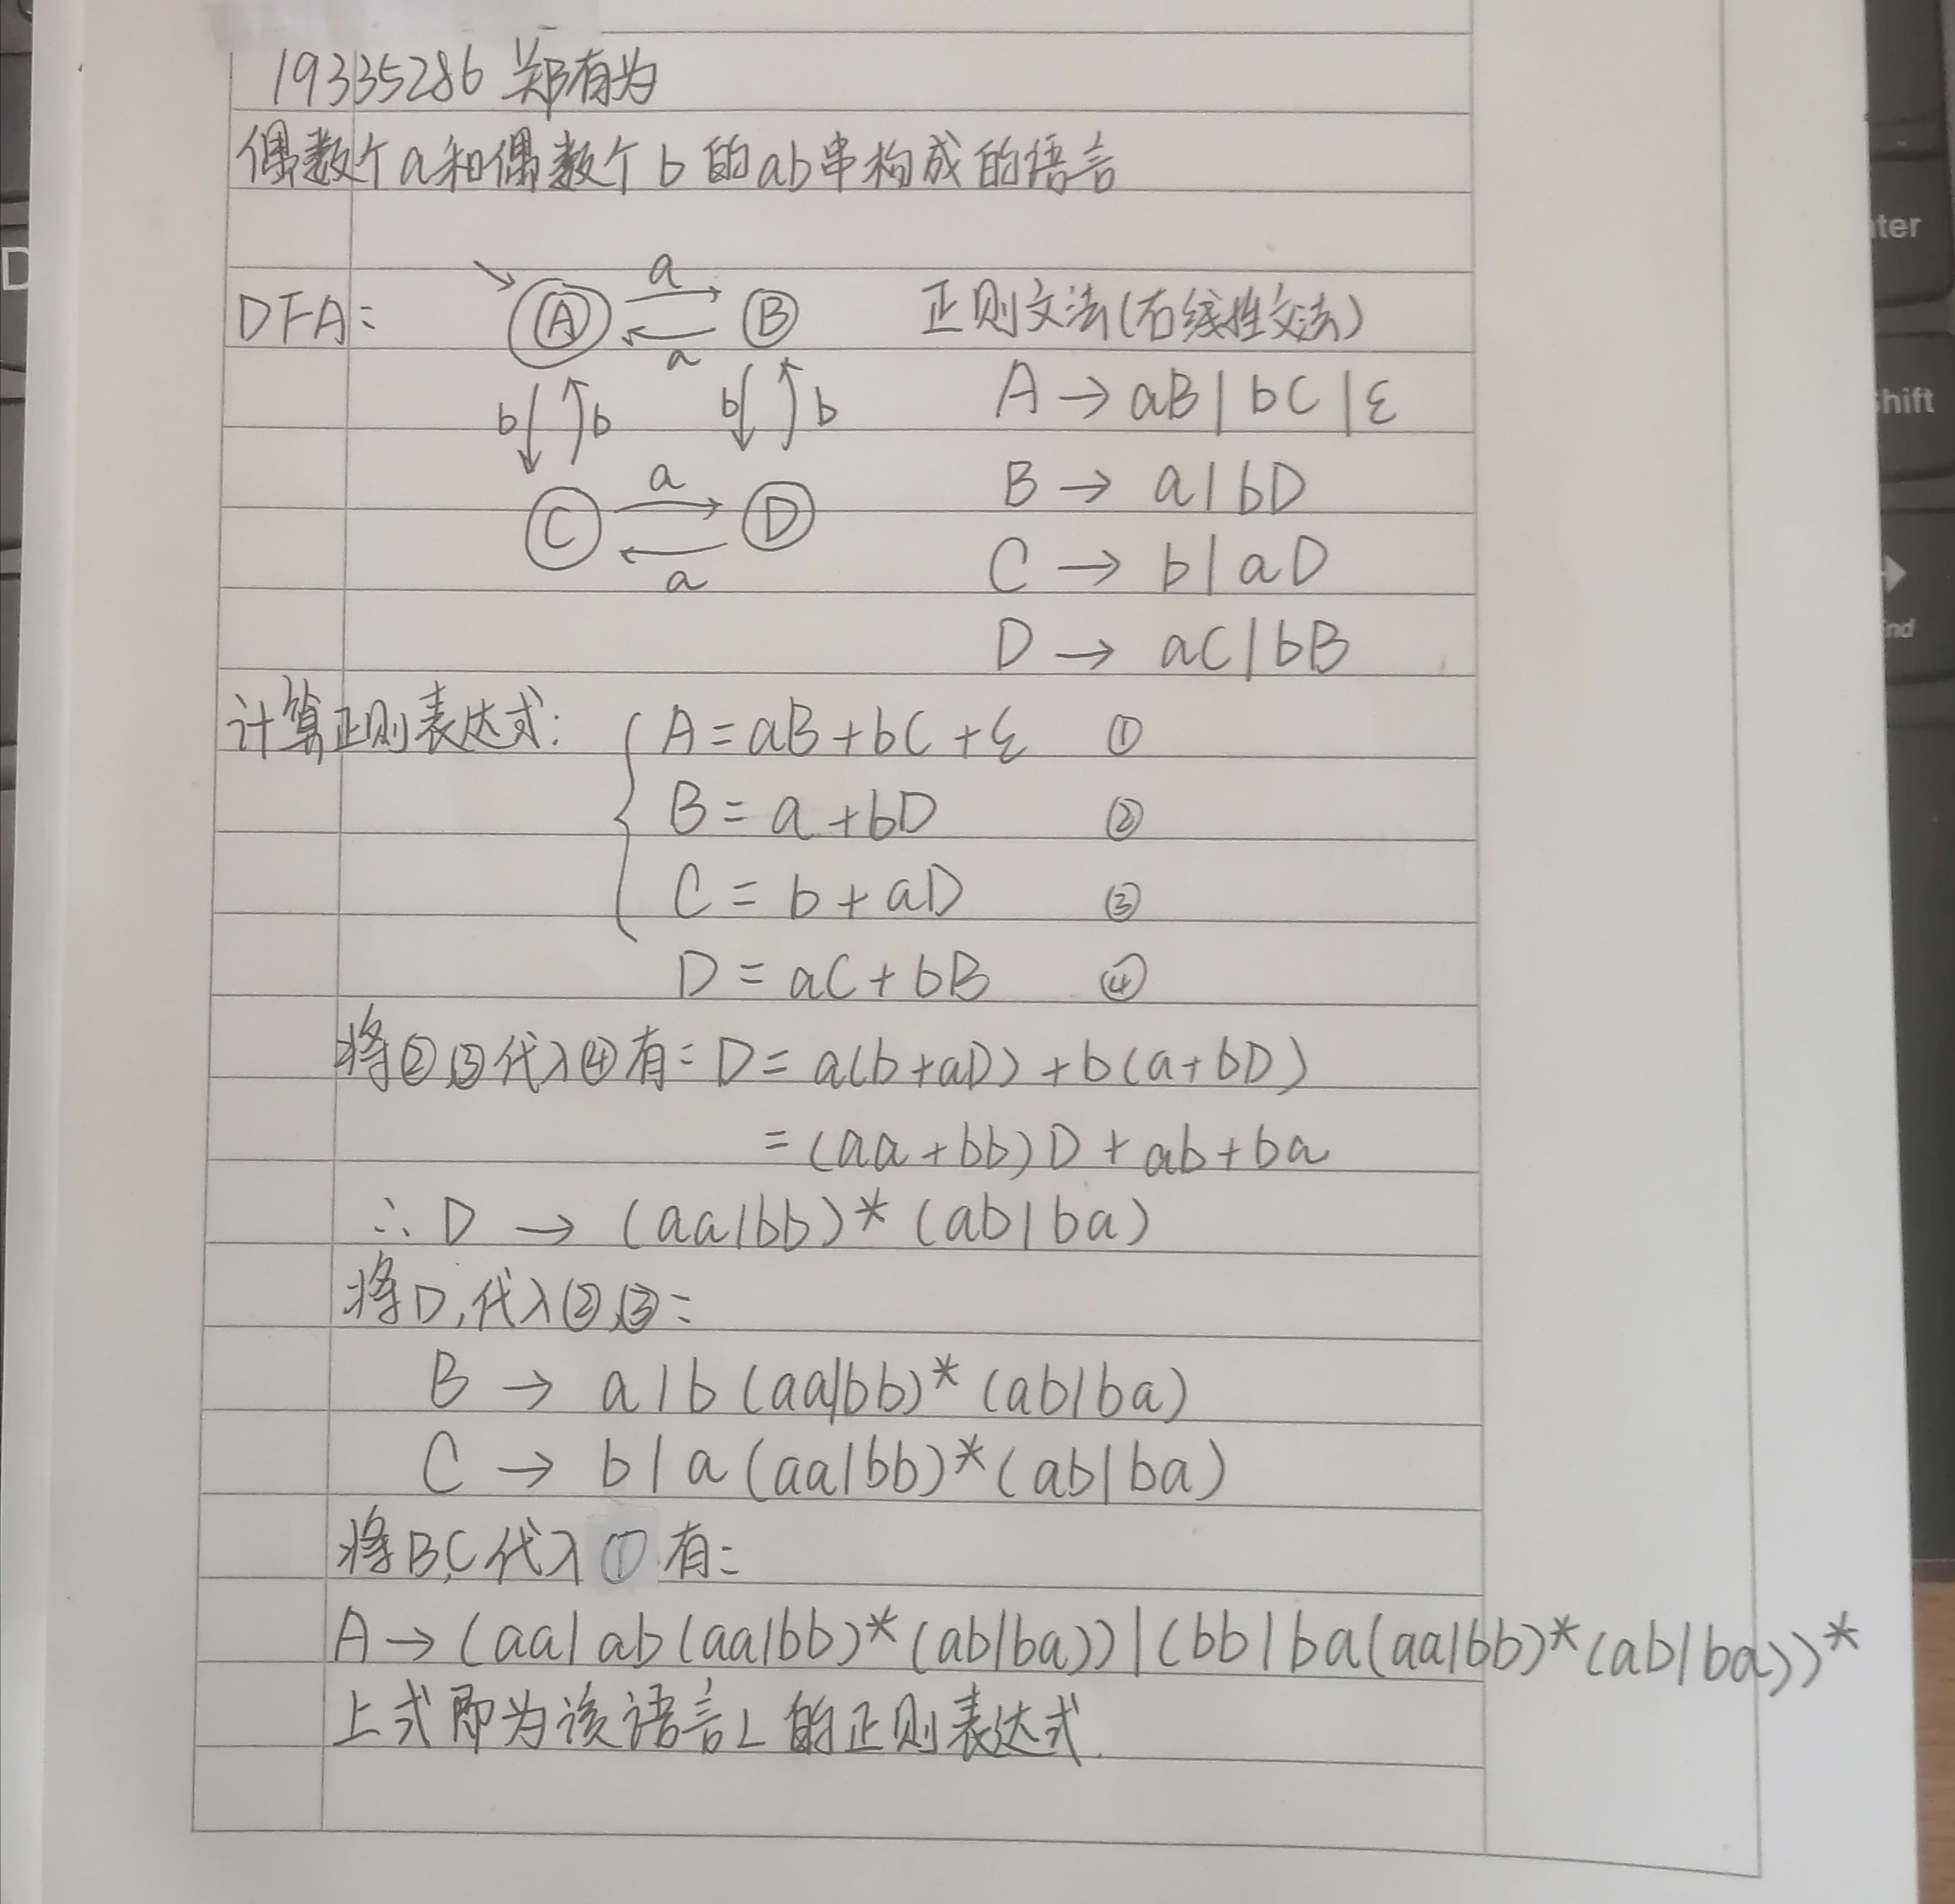 19335286 郑有为
偶数个a和偶数个b的ab串构成的语言
DFA:
A
a
B
a
b
b
b
b
C
a
D
a
正则文法(右线性文法)
A → aB | bC | ε
B → a | bD
C → b | aD
D → aC | bB
计算正则表达式:
A = aB + bC + ε ①
B = a + bD ②
C = b + aD ③
D = aC + bB ④
将②,③代入④有: D = a(b+aD) + b(a+bD)
= (aa+bb)D + ab + ba
∴ D → (aa|bb)* (ab|ba)
将D,代入②,③:
B → a | b (aa|bb)* (ab|ba)
C → b | a (aa|bb)* (ab|ba)
将B,C代入①有:
A → (aa| ab (aa|bb)* (ab|ba)) | (bb | ba(aa|bb)* (ab|ba))*
上式即为该语言L的正则表达式.
D
ter
hift
nd